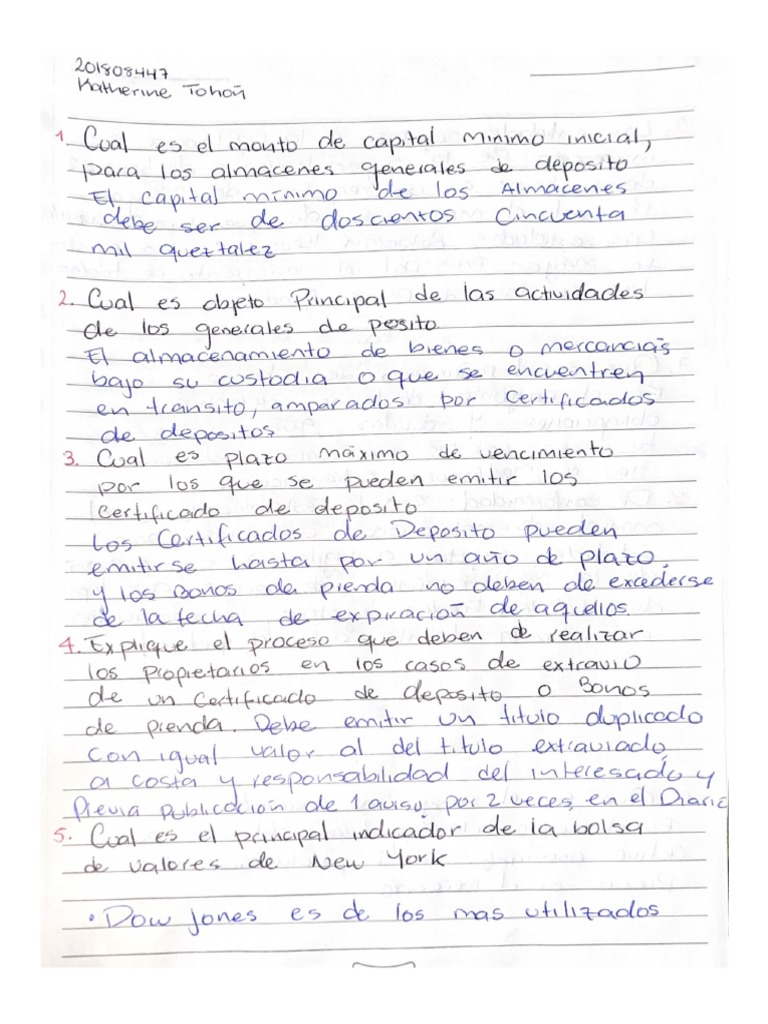 201808447
Katherine Tohoñ
1. Cual es el monto de capital minimo inicial,
para los almacenes generales de deposito
El capital mínimo de los Almacenes
debe ser de doscientos Cincuenta
mil quetzalez
2. Cual es objeto Principal de las actividades
de los generales de posito.
El almacenamiento de bienes o mercancias
bajo su custodia o que se encuentren
en transito, amparados por Certificados
de depositos
3. Cual es plazo máximo de vencimiento
por los que se pueden emitir los
Certificado de deposito
Los Certificados de Deposito pueden
emitirse hasta por un año de plazo,
y los Bonos de pienda no deben de excederse
de la fecha de expiracioñ de aquellos.
4. Explique el proceso que deben de realizar
los Propietarios en los casos de extravio
de un Certificado de deposito o Bonos
de pienda. Debe emitir un titulo duplicado
con igual valor al del titulo extraviado,
a costa y responsabilidad del interesado y
Previa publicación de 1 aviso, por 2 veces, en el Diario
5. Cual es el principal indicador de la bolsa
de valores de New York
• Dow jones es de los mas utilizados